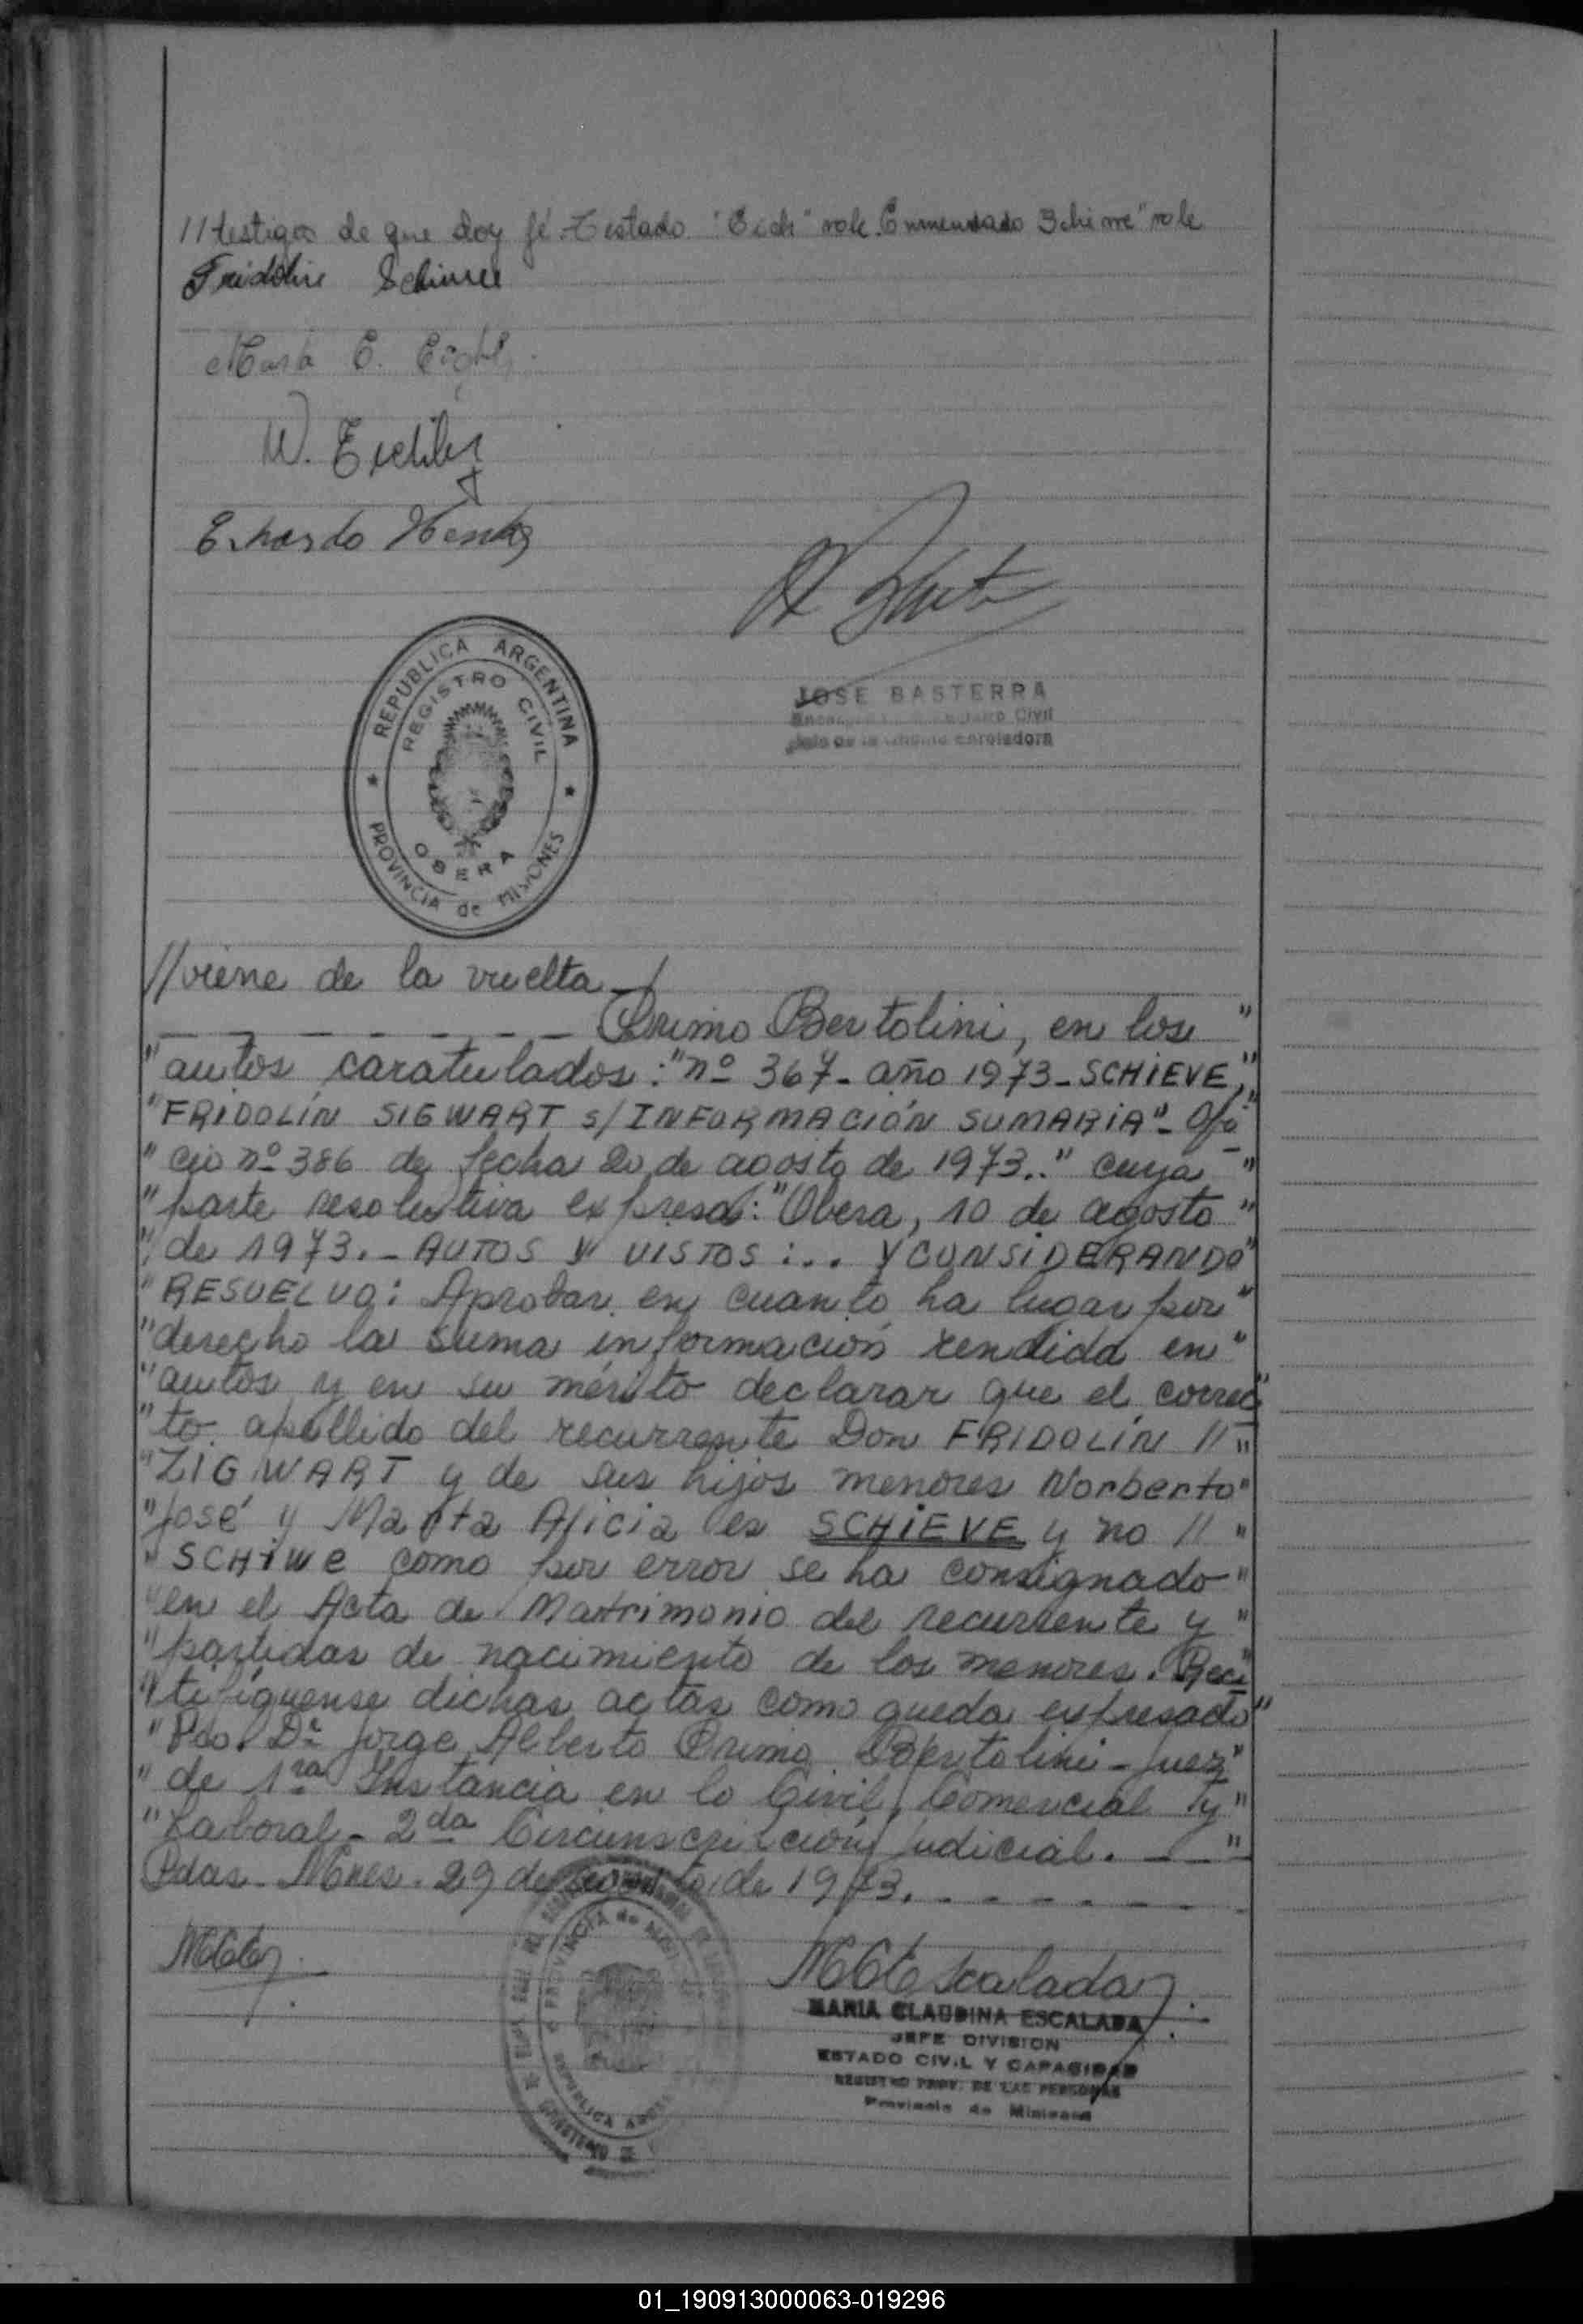 //testigos de que doy fé. Testado "Eich" vale. Enmendado Schiwe" vale
Fridolin Schiwe
W. Eichler
REPUBLICA ARGENTINA
REGISTRO CIVIL
OBERA
PROVINCIA de MISIONES
JOSE BASTERRA
Registro Civil
Jefe de la Oficina enroladora
//viene de la vuelta./
_ _ _ _ _ _ _ _ Primo Bertolini, en los "
"autos caratulados: "nº 367- año 1973- SCHIEVE,"
"FRIDOLÍN SIGWART s/INFORMACIÓN SUMARIA"- Ofi"
"cio nº 386 de fecha 20 de agosto de 1973.." cuya "
"parte resolutiva expresa: "Obera, 10 de agosto "
"de 1973.- AUTOS Y VISTOS:... Y CONSIDERANDO"
"RESUELVO: Aprobar en cuanto ha lugar por"
"derecho la suma información rendida en"
"autos y en su mérito declarar que el correc"
"to apellido del recurrente Don FRIDOLÍN // "
"ZIGWART y de sus hijos menores Norberto"
"José y Marta Alicia es SCHIEVE y no // "
"SCHIWE como por error se ha consignado"
"en el Acta de Matrimonio del recurrente y "
"partidas de nacimiento de los menores. Rec"
"tifíquense dichas actas como queda expresado"
"Fdo. Dr Jorge Alberto Primo Bertolini - Juez"
"de 1ra Instancia en lo Civil, Comercial y"
"Laboral- 2da Circunscripción Judicial. _ _"
Pdas- Mnes. 29 de agosto de 1973. _ _ _ _ _
PROVINCIA de
REPUBLICA
MINISTERIO
MCEscalada
MARIA CLAUDINA ESCALADA
JEFE DIVISION
ESTADO CIVIL Y CAPACIDAD
REGISTRO PROV. DE LAS PERSONAS
Provincia de Misiones
01_190913000063-019296